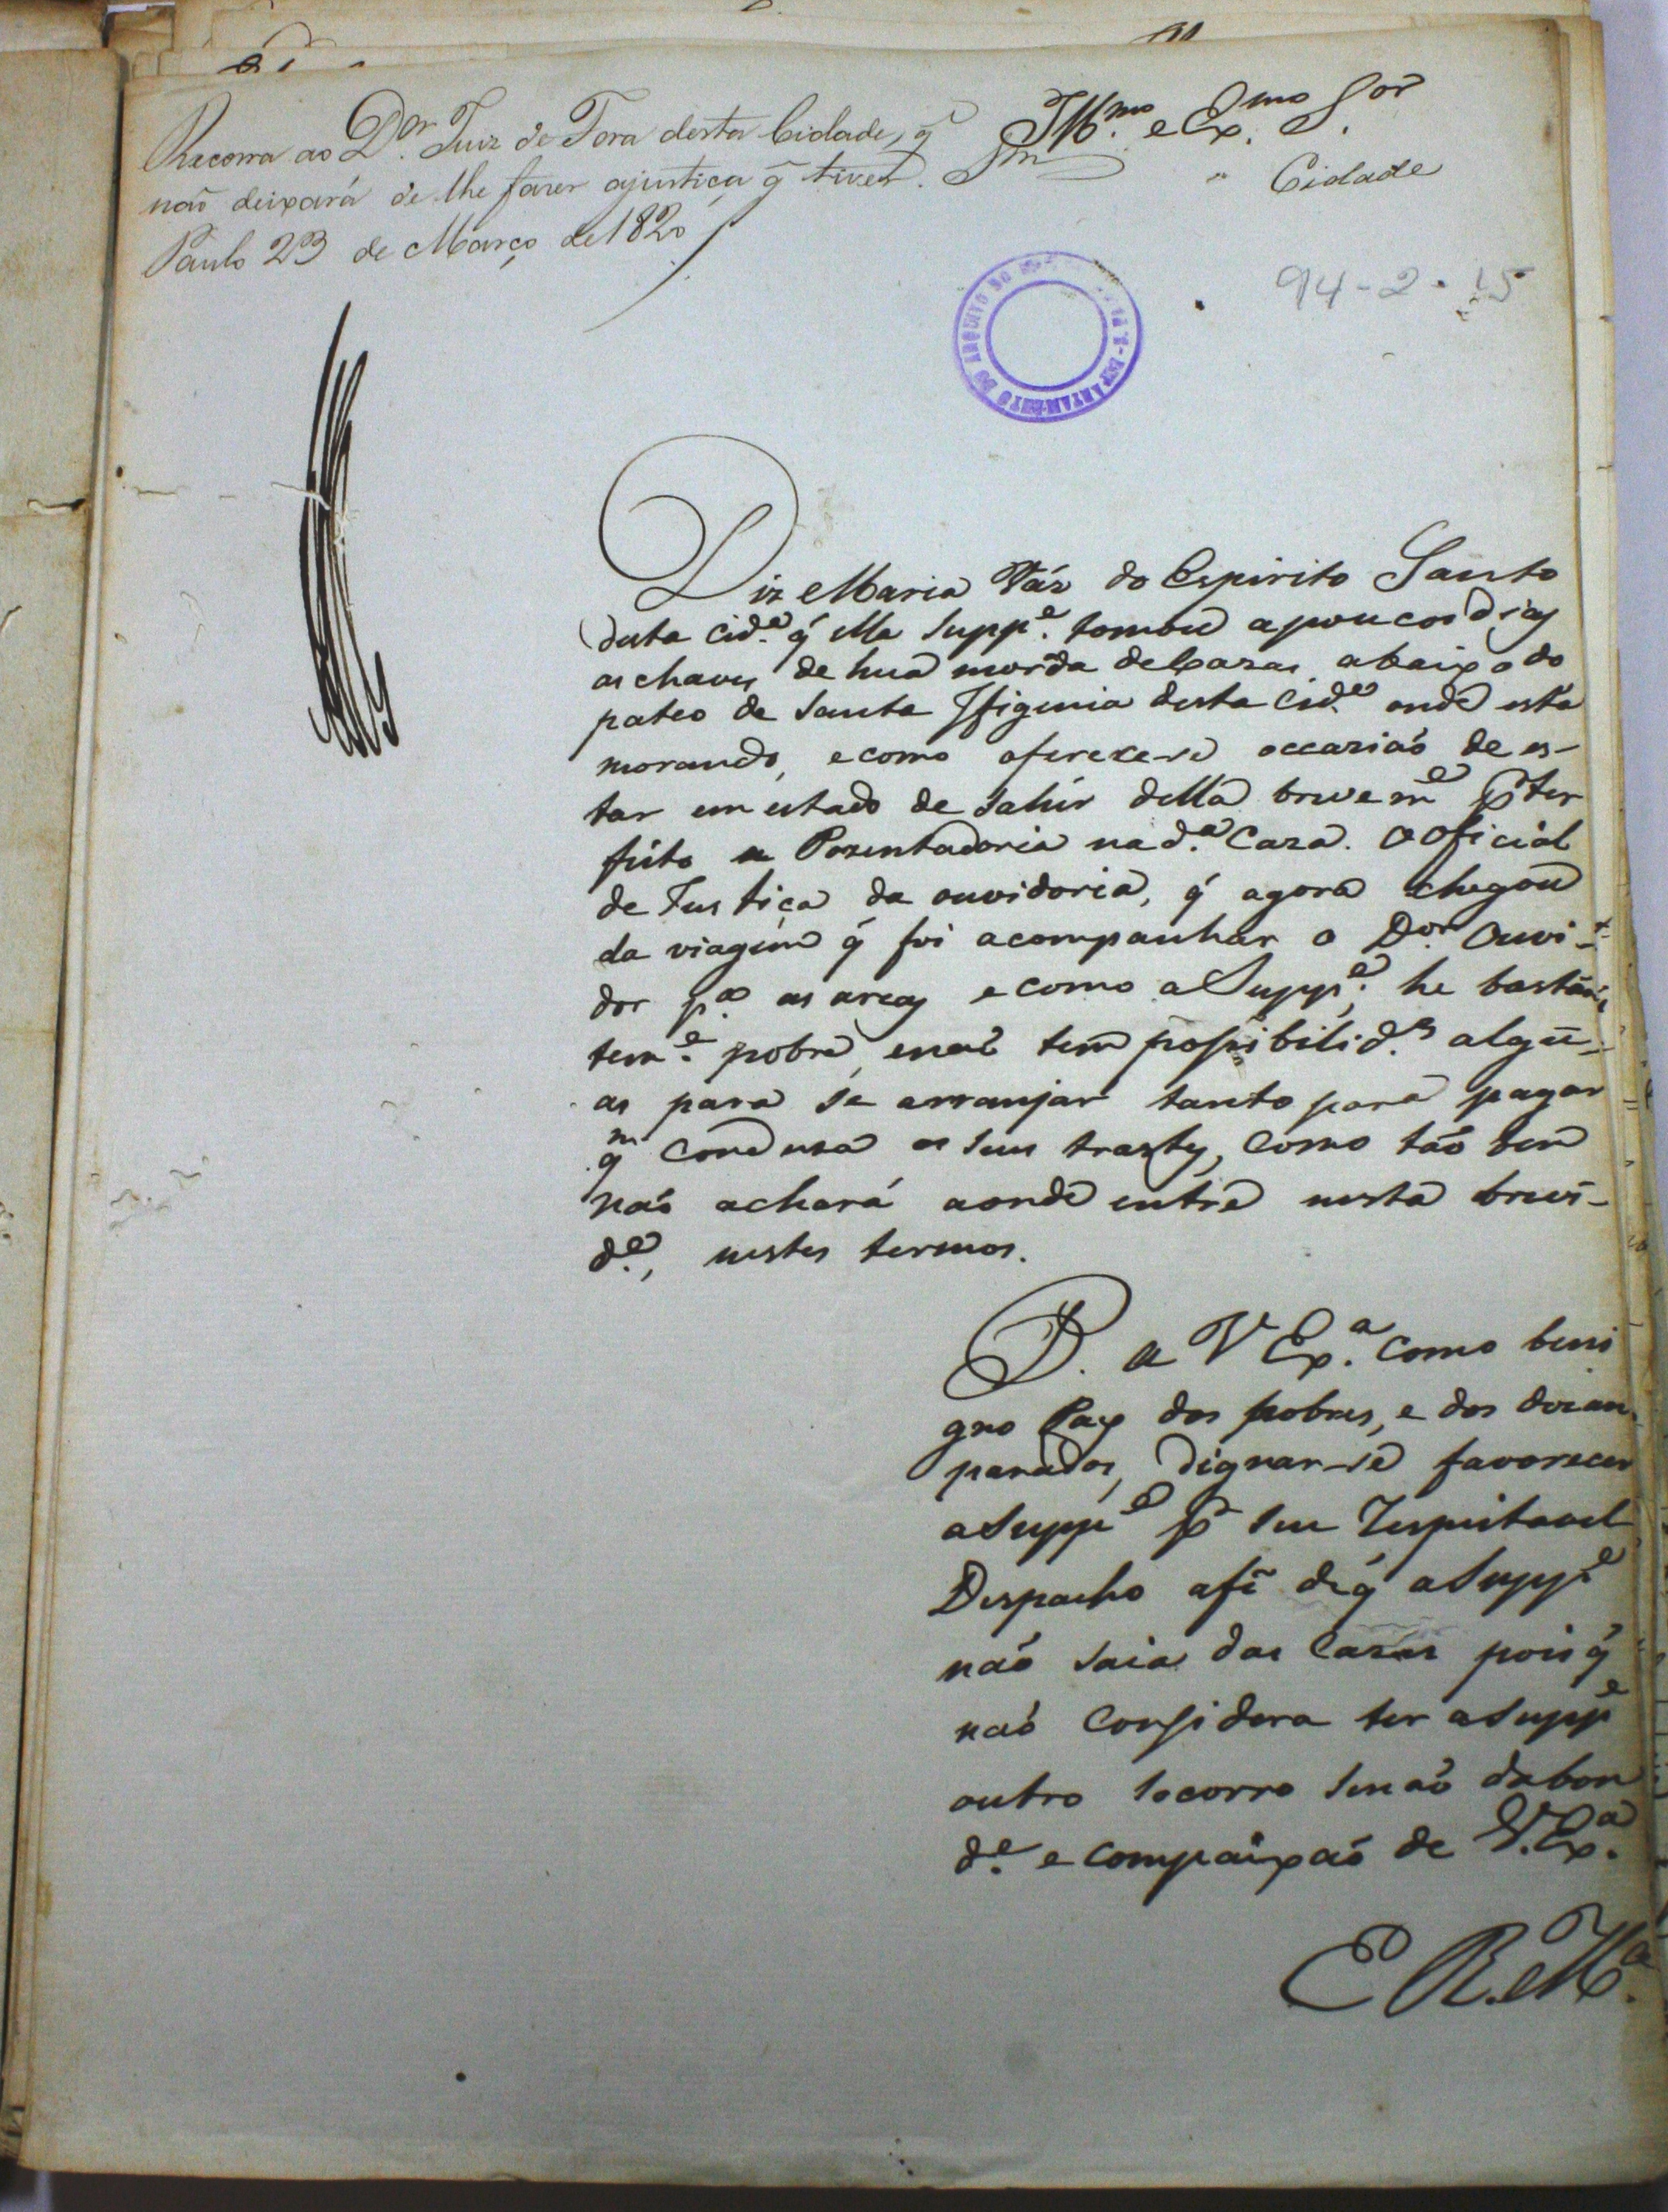 Recorra ao D.or Juiz de Fora desta Cidade, q̃
naõ deixará de lhe fazer ajustiça q̃ tiver. Sm
Paulo 23 de Março de 1820
Ill.mo e Ex.mo S.or
Cidade
94-2-15
Diz Maria Váz do Espirito Santo
desta Cid.e q̃ ella Supp.e tomou apoucos dias
as chaves de huã morada de Cazas abaixo do
pateo de Santa Ifigenia desta Cid.e onde está
morando, e como oferece-se occaziaõ de es-
tar em estado de sahir della brevem.e p̃ ter
feito a Pozentadoria na d.a Caza. O Oficial
de Justiça da ouvidoria, q̃ agora chegou
da viagem q̃ foi acompanhar o D.or Ouvi-
dor p.a as areas e como a Supp.e he bastan
tem.e pobre, e naõ tem possibilid.es algũ-
as para se arranjar tanto para pagar
q.m Conduza os seus trastes, como taõ bem
naõ achará aonde entre nesta brevi-
d.e, nestes termos.
P. a V Ex.a como beni
gno Pay dos pobres, e dos dezam-
parados, dignar-se favorecer
a Supp.e p̃ seu Respeitavel
Despacho afĩ de q̃ a Supp.e
naõ saia das Cazas pois q̃
naõ Considera ter a Supp.e
outro socorro senaõ da bon
d.e e compaixaõ de V. Ex.a
E R. M.ce